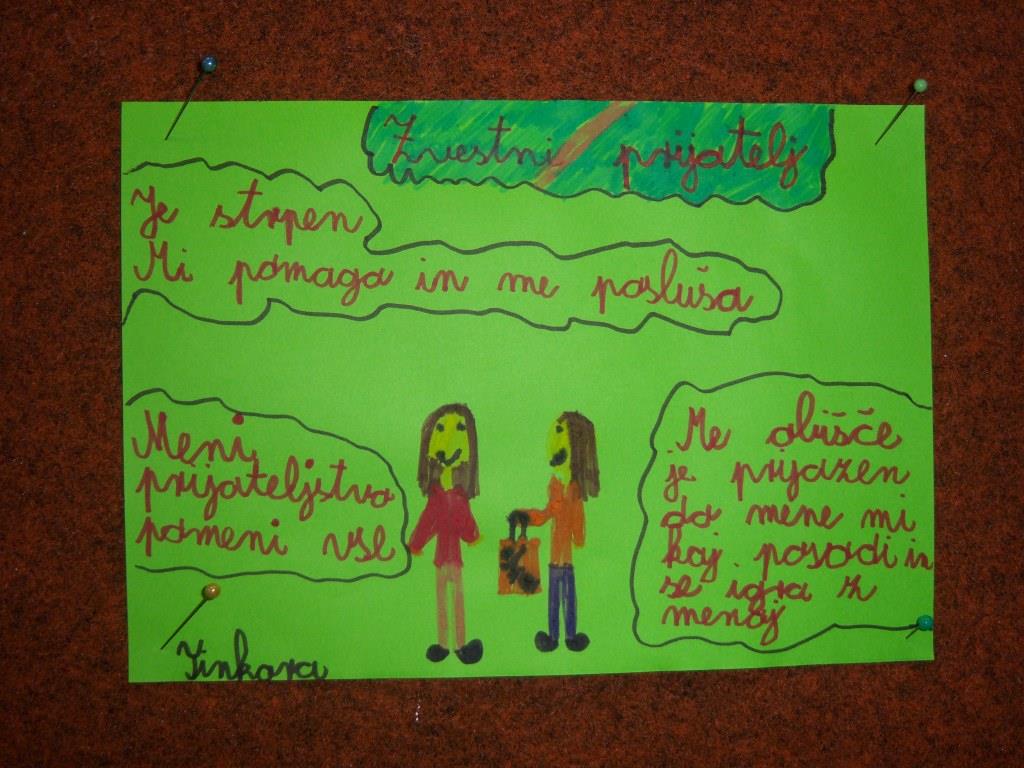 Zvestni prijatelj
Je strpen
Mi pomaga in me posluša
Meni
prijateljstvo
pomeni vse
Me obišče
je prijazen
do mene mi
kaj posodi in
se igra z
menoj
Tinkara